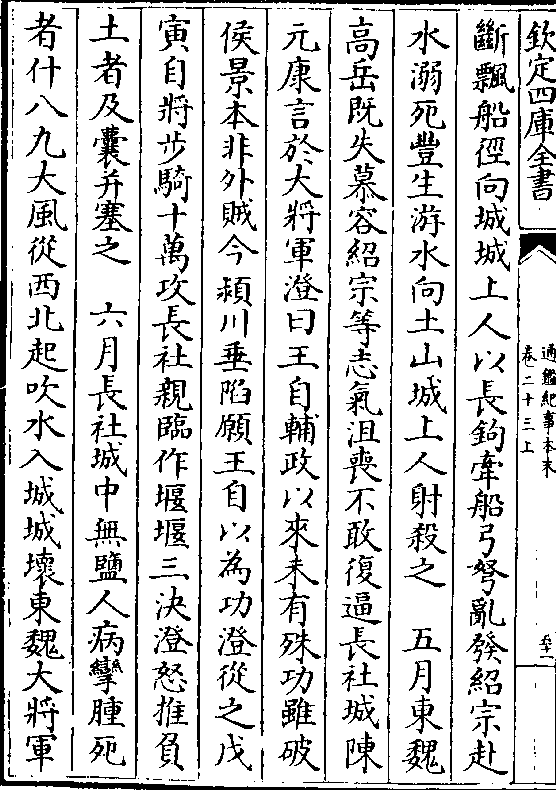 欽定四庫全書
通鑑紀事本末
卷二十三上
斷飄船徑向城城上人以長鉤牽船弓弩亂發紹宗赴
水溺死豐生游水向土山城上人射殺之　五月東魏
高岳既失慕容紹宗等志氣沮喪不敢復逼長社城陳
元康言於大將軍澄曰王自輔政以來未有殊功雖破
侯景本非外賊今潁川垂陷願王自以為功澄從之戊
寅自將步騎十萬攻長社親臨作堰堰三決澄怒推負
土者及囊并塞之　六月長社城中無鹽人病攣腫死
者什八九大風從西北起吹水入城城壞東魏大將軍